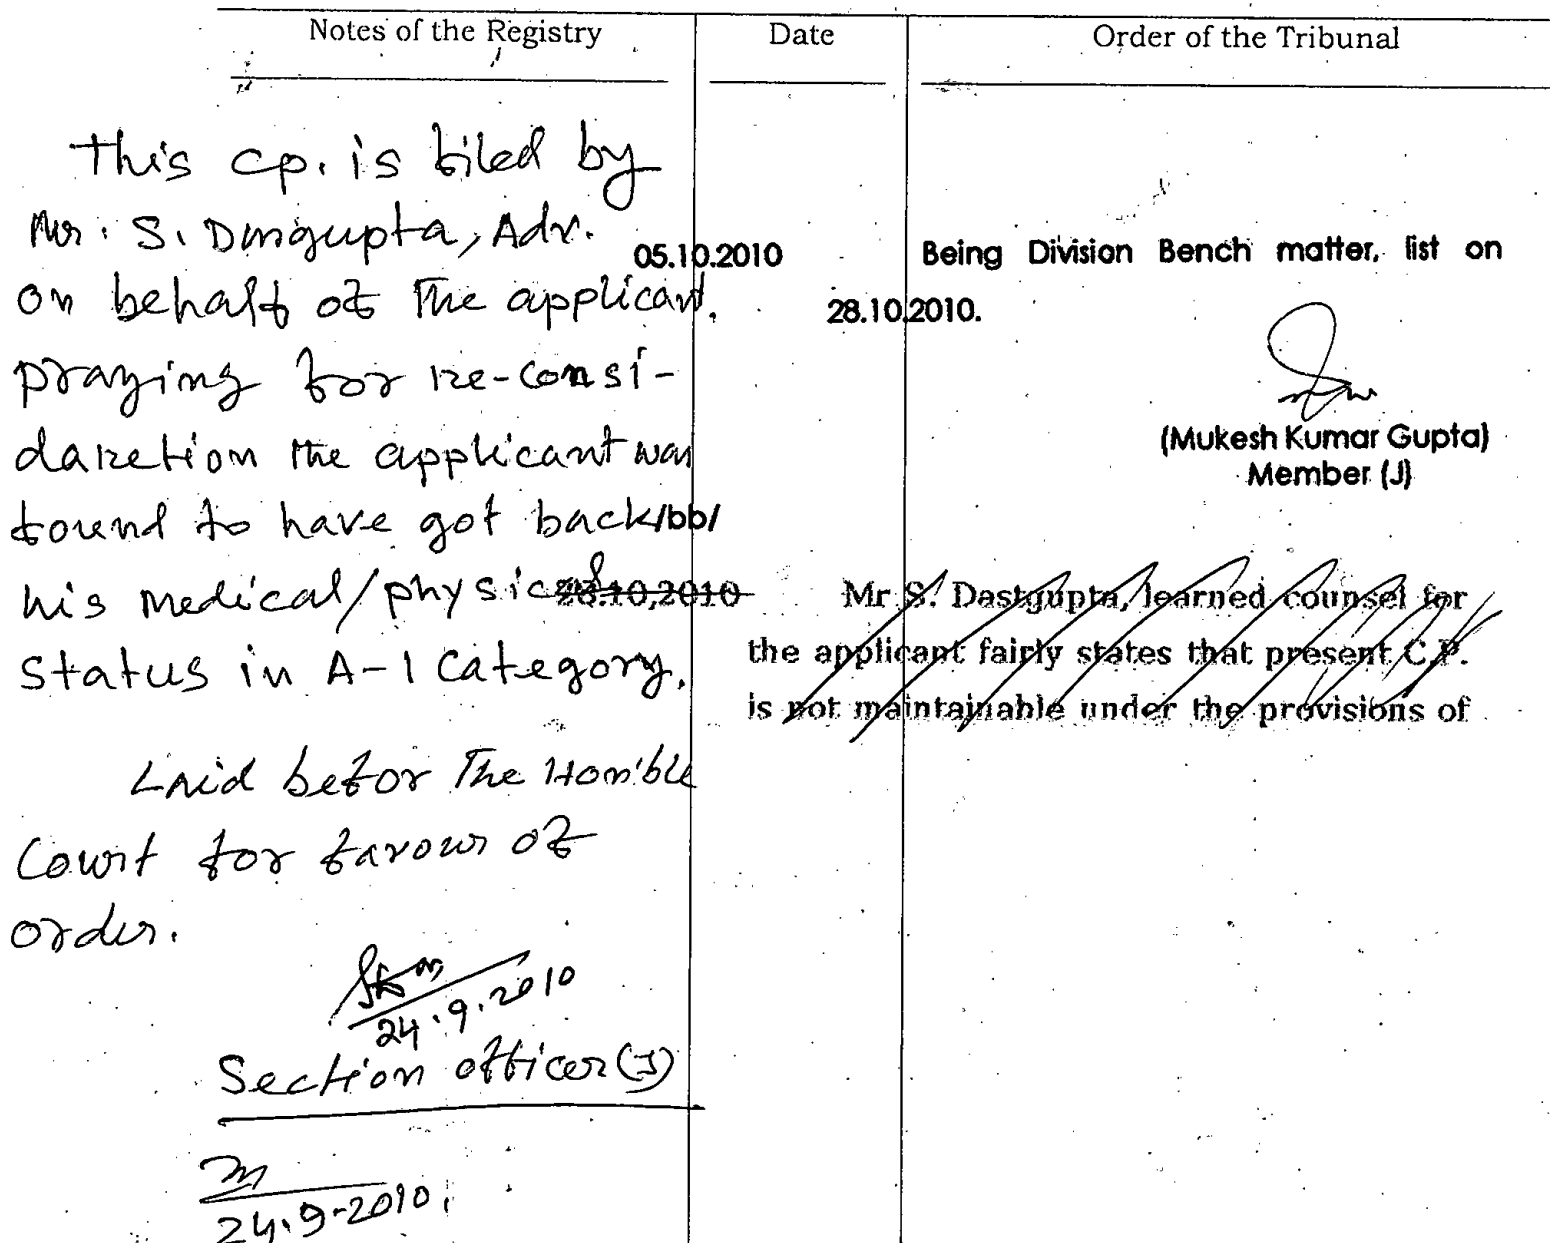 Notes of the Registry
Date
Order of the Tribunal
This cp. is filed by
Mr. S. Dasgupta, Adv.
on behalf of The applicant.
praying for re-consi-
daretion the applicant was
found to have got back
his medical/physical
status in A-1 category.
Laid befor The Hon'ble
Court for favour of
order.
24.9.2010
Section officer (J)
24.9.2010.
05.10.2010
Being Division Bench matter, list on
28.10.2010.
(Mukesh Kumar Gupta)
Member (J)
/bb/
28.10.2010
Mr S. Dastgupta, learned counsel for
the applicant fairly states that present C.P.
is not maintainable under the provisions of